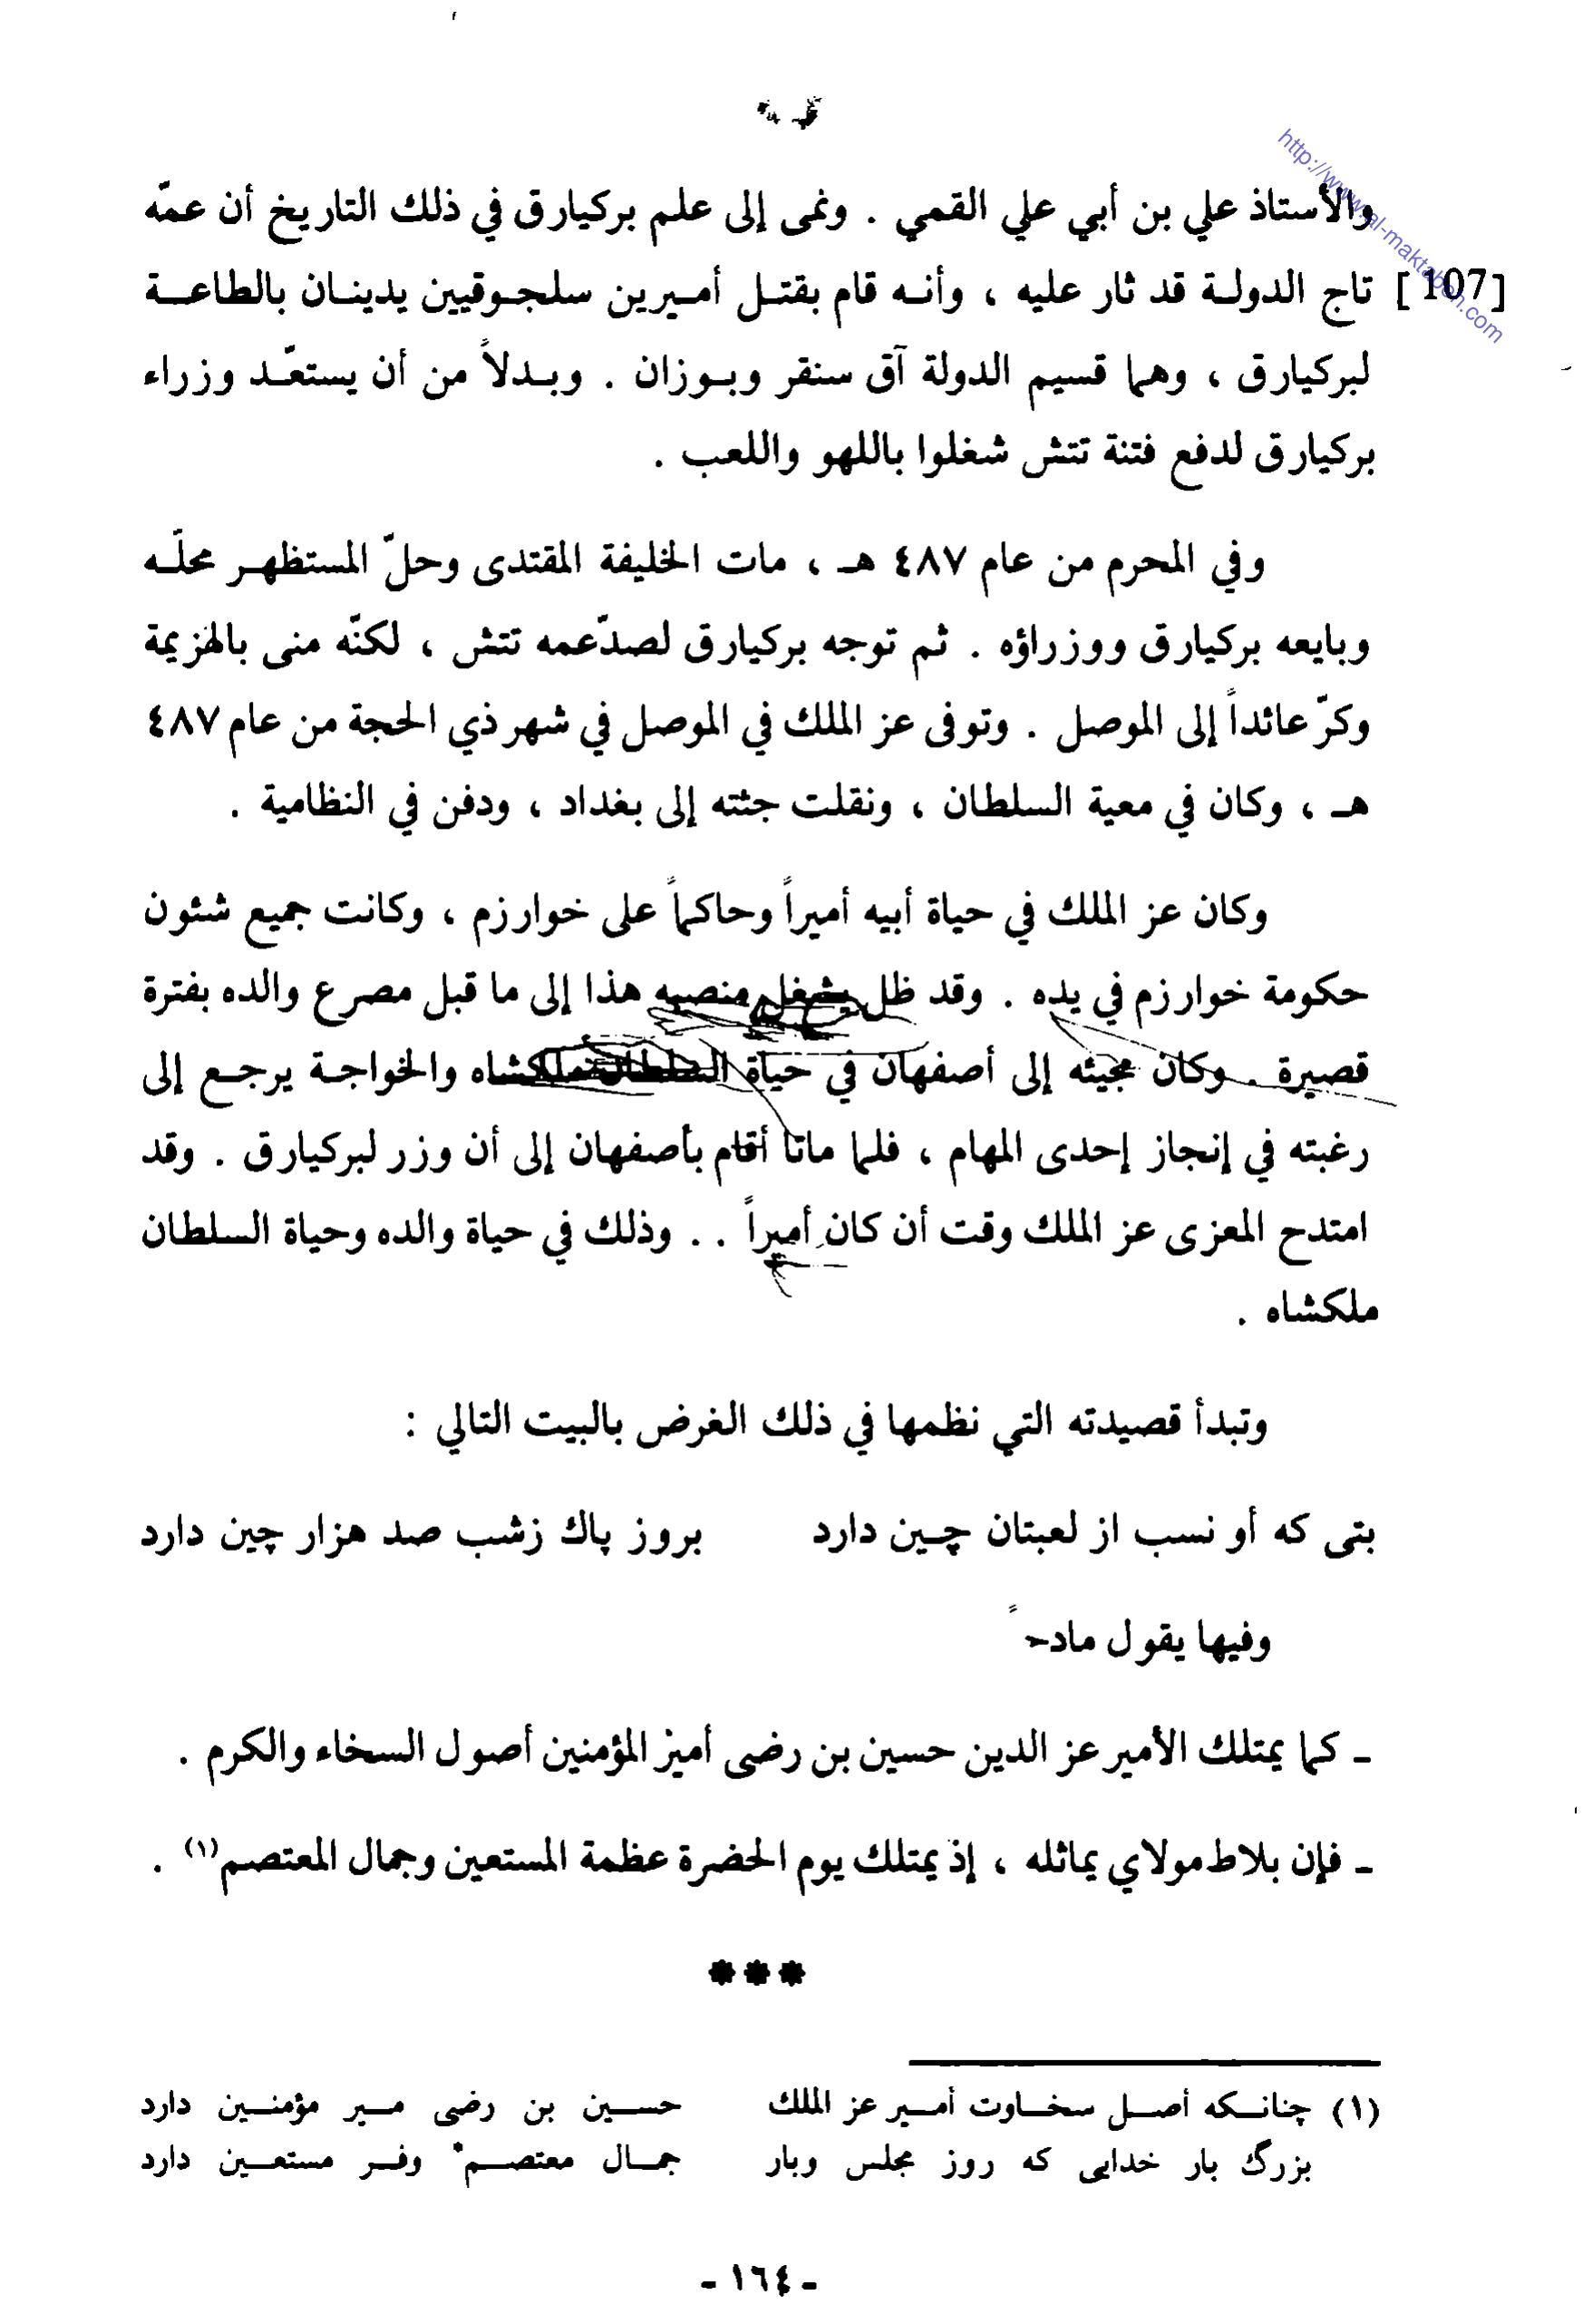 http://www.al-maktabeh.com
والأستاذ علي بن أبي علي القمي . ونمى إلى علم بركيارق في ذلك التاريخ أن عمّه
[107] تاج الدولة قد ثار عليه ، وأنه قام بقتل أميرين سلجوقيين يدينان بالطاعة
لبركيارق ، وهما قسيم الدولة آق سنقر وبوزان . وبدلاً من أن يستعّد وزراء
بركيارق لدفع فتنة تتش شغلوا باللهو واللعب .
وفي المحرم من عام ٤٨٧ هـ ، مات الخليفة المقتدى وحلّ المستظهر محلّه
وبايعه بركيارق ووزراؤه . ثم توجه بركيارق لصدّعمه تتش ، لكنّه منى بالهزيمة
وكرّ عائداً إلى الموصل . وتوفى عز الملك في الموصل في شهر ذي الحجة من عام ٤٨٧
هـ ، وكان في معية السلطان ، ونقلت جثته إلى بغداد ، ودفن في النظامية .
وكان عز الملك في حياة أبيه أميراً وحاكماً على خوارزم ، وكانت جميع شئون
حكومة خوارزم في يده . وقد ظل يشغل منصبه هذا إلى ما قبل مصرع والده بفترة
قصيرة . وكان مجيئه إلى أصفهان في حياة السلطان ملكشاه والخواجة يرجع إلى
رغبته في إنجاز إحدى المهام ، فلما ماتا أقام بأصفهان إلى أن وزر لبركيارق . وقد
امتدح المعزى عز الملك وقت أن كان أميراً . . وذلك في حياة والده وحياة السلطان
ملكشاه .
وتبدأ قصيدته التي نظمها في ذلك الغرض بالبيت التالي :
بتى كه أو نسب از لعبتان چين دارد بروز پاك زشب صد هزار چين دارد
وفيها يقول مادحاً
ـ كما يمتلك الأمير عز الدين حسين بن رضى أمير المؤمنين أصول السخاء والكرم .
ـ فإن بلاط مولاي يماثله ، إذ يمتلك يوم الحضرة عظمة المستعين وجمال المعتصم(١) .
***
(١) چنانكه أصل سخاوت أمير عز الملك حسين بن رضى مير مؤمنين دارد
بزرگ بار خدايى كه روز مجلس وبار جمال معتصم وفر مستعين دارد
- ١٦٤ -